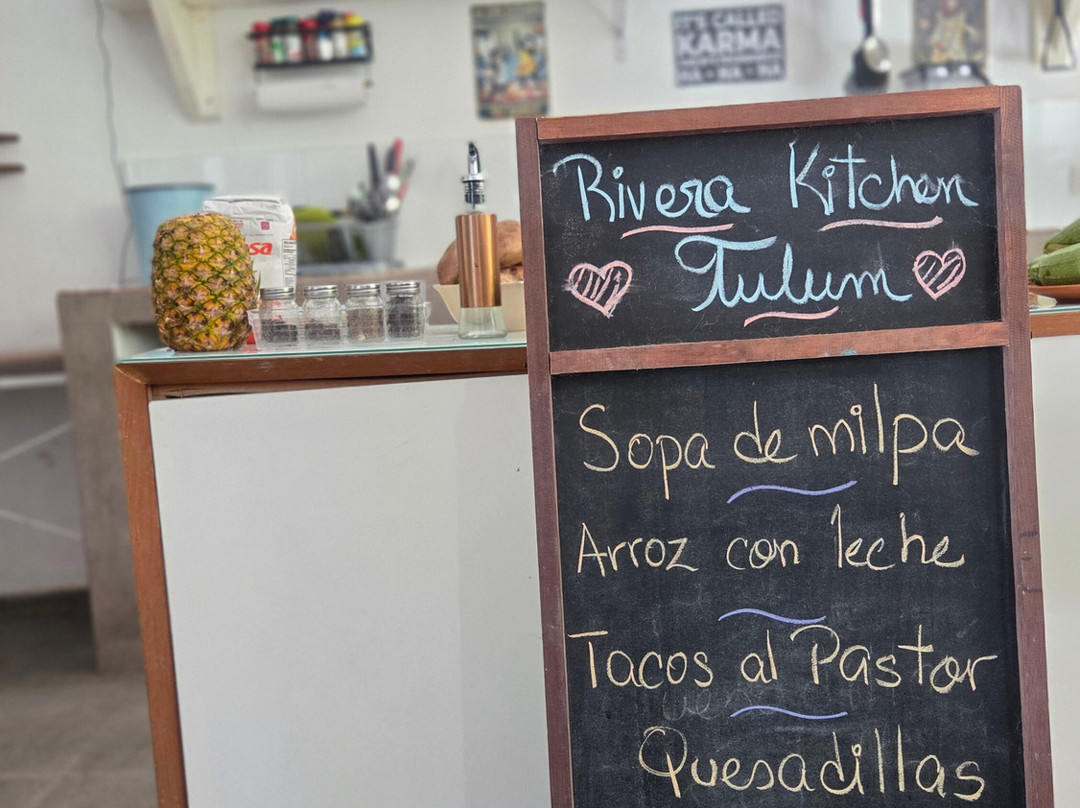 IT'S CALLED
KARMA
HA • HA • HA
Rivera Kitchen
Tulum
Sopa de milpa
Arroz con leche
Tacos al Pastor
Quesadillas